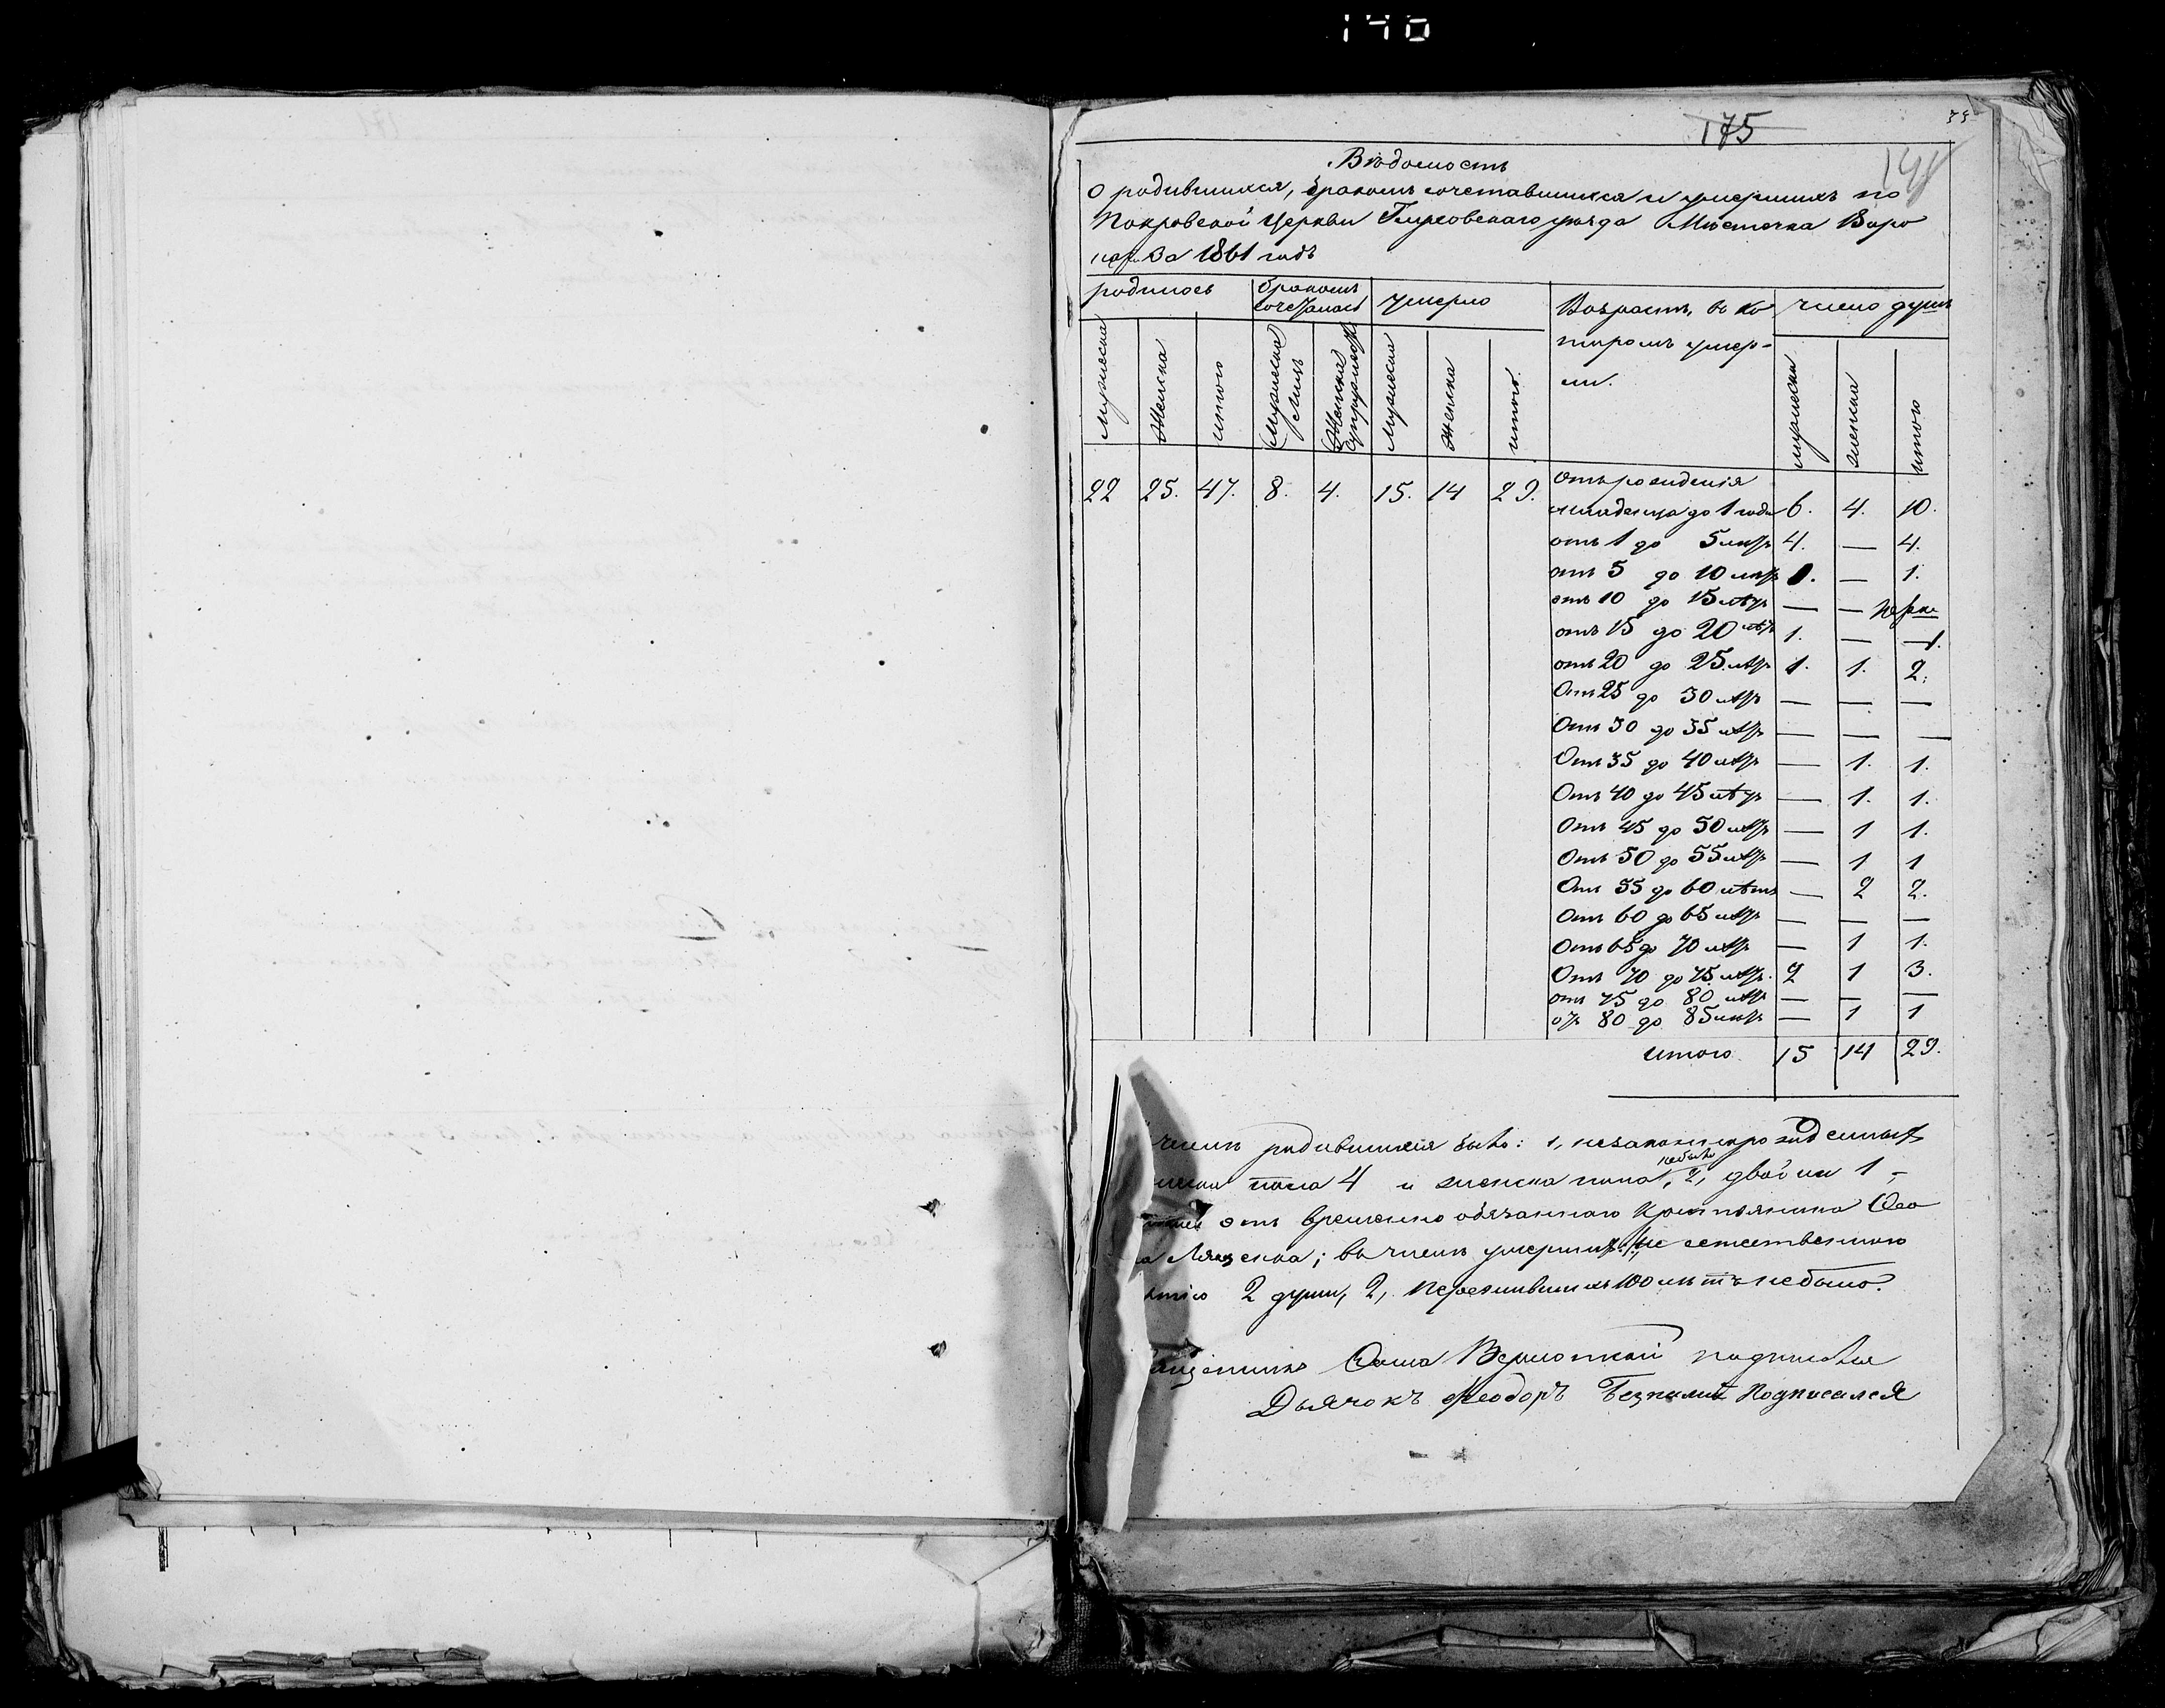 140
175
Вѣдомость
О родившихся, бракомъ сочетавшихся и умершихъ по
Покровской Церкви Глуховскаго уѣзда Мѣстечка Воро
За 1861 годъ
родилось бракомъ сочеталось умерло Возрастъ, въ ко число душъ
торомъ умер-
ли.
мужеска женска итого мужеска женска мужеска женска итого. мужеска женска итого
22 25. 47. 8. 4. 15. 14 29. Отъ рожденія
младенца до 1 года 6. 4. 10.
отъ 1 до 5 лѣтъ 4. — 4.
отъ 5 до 10 лѣтъ 1. — 1.
отъ 10 до 15 лѣтъ — —
отъ 15 до 20 лѣтъ 1. — 1.
отъ 20 до 25 лѣтъ 1. 1. 2.
Отъ 25 до 30 лѣтъ — — —
Отъ 30 до 35 лѣтъ — — —
Отъ 35 до 40 лѣтъ — 1. 1.
Отъ 40 до 45 лѣтъ — 1. 1.
Отъ 45 до 50 лѣтъ — 1 1.
Отъ 50 до 55 лѣтъ — 1 1
Отъ 55 до 60 лѣтъ — 2 2.
Отъ 60 до 65 лѣтъ — — —
Отъ 65 до 70 лѣтъ — 1 1.
Отъ 70 до 75 лѣтъ. 2 1 3.
отъ 75 до 80 лѣтъ — — —
отъ 80 до 85 лѣтъ — 1 1
итого 15 14 29.
родившихся было: 1, незаконнорожденныхъ
пола 4 и женска пола, 2, двойни 1 —
отъ временно обязаннаго Крестьянина
въ числѣ умершихъ: 1, не естественною
2 души, 2, пережившихъ 100 лѣтъ небыло.
подписался
Дьячокъ Феодоръ подписался